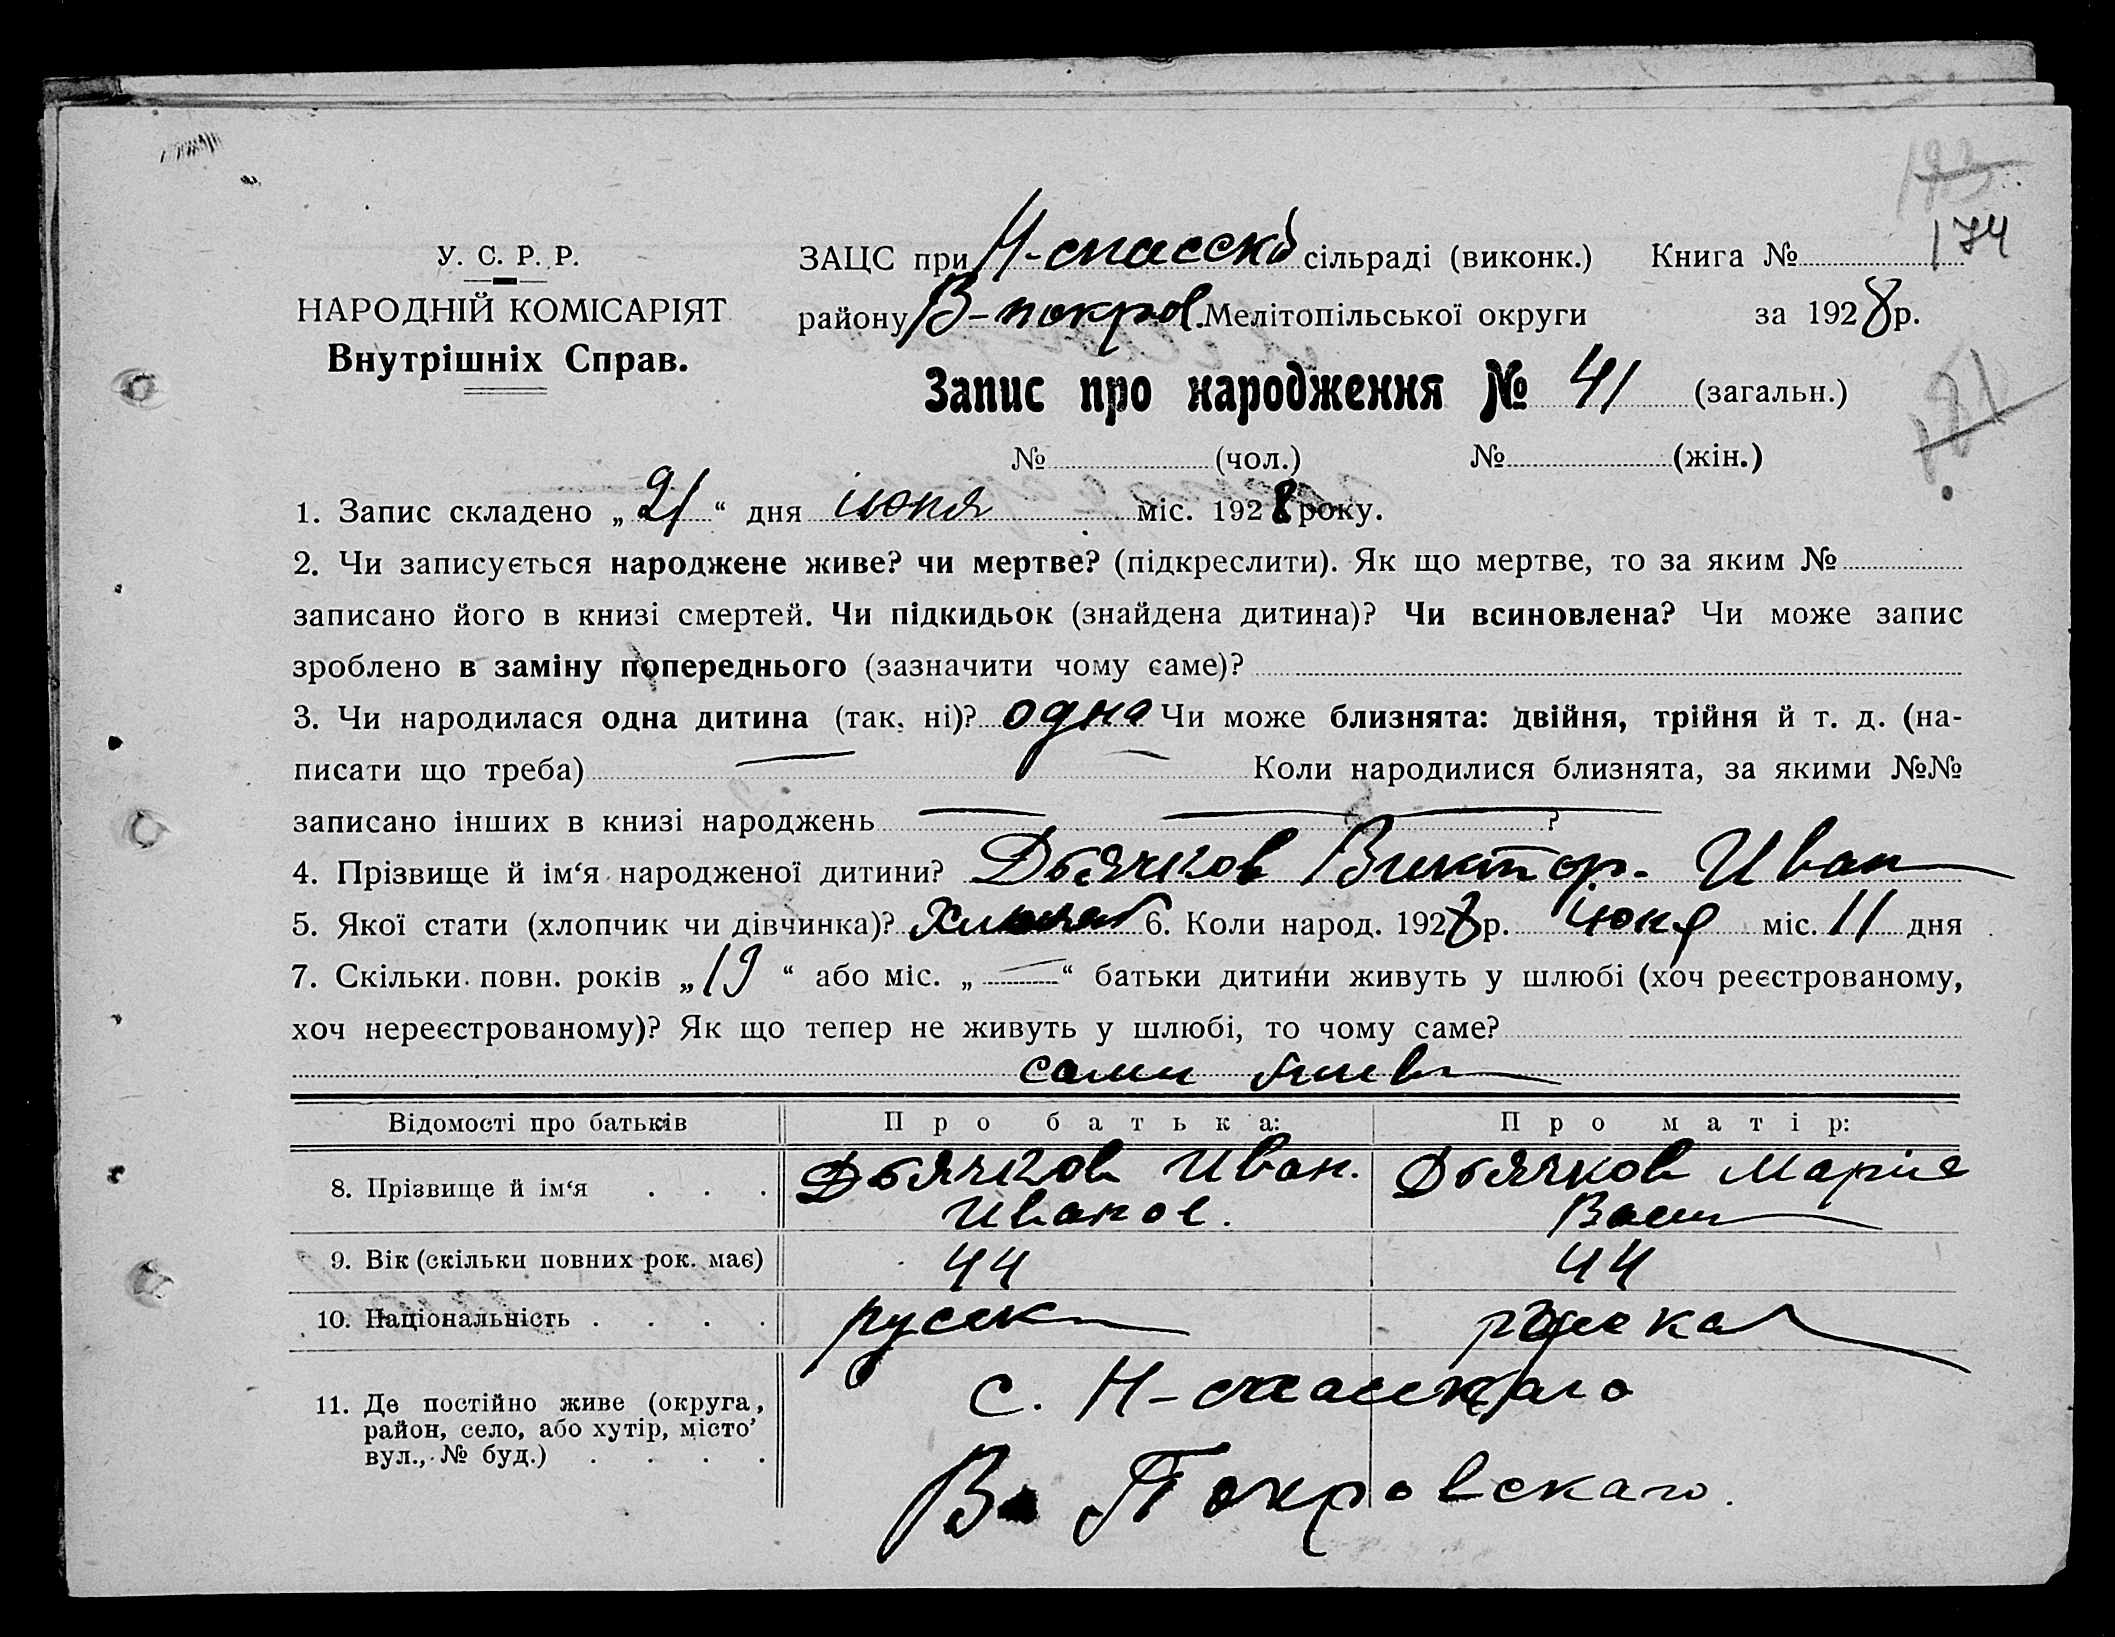 173
174
У. С. Р. Р.
НАРОДНІЙ КОМІСАРІЯТ
Внутрішніх Справ.
ЗАЦС при Н-спасско сільраді (виконк.) Книга №
району В-покров. Мелітопільської округи за 1928 р.
Запис про народження № 41 (загальн.)
181
№ (чол.) № (жін.)
1. Запис складено „21“ дня июня міс. 1928 року.
2. Чи записується народжене живе? чи мертве? (підкреслити). Як що мертве, то за яким №
записано його в книзі смертей. Чи підкидьок (знайдена дитина)? Чи всиновлена? Чи може запис
зроблено в заміну попереднього (зазначити чому саме)?
3. Чи народилася одна дитина (так, ні)? одна Чи може близнята: двійня, трійня й т. д. (на-
писати що треба) — — Коли народилися близнята, за якими №№
записано інших в книзі народжень — — — ?
4. Прізвище й ім‘я народженої дитини? Дьячков Виктор. Иван
5. Якої стати (хлопчик чи дівчинка)? 6. Коли народ. 1928 р. июня міс. 11 дня
7. Скільки повн. років „19“ або міс. „—“ батьки дитини живуть у шлюбі (хоч реєстрованому,
хоч нереєстрованому)? Як що тепер не живуть у шлюбі, то чому саме?
Відомості про батьків Про батька: Про матір:
8. Прізвище й ім‘я . . . Дьячков Иван. Дьячков Мария
Иванов. Васи
9. Вік (скільки повних рок. має) 44 44
10. Національність . . . . русск русская
11. Де постійно живе (округа,
район, село, або хутір, місто
вул., № буд.) . . . .
с. Н-спасскаго
В Покровскаго.